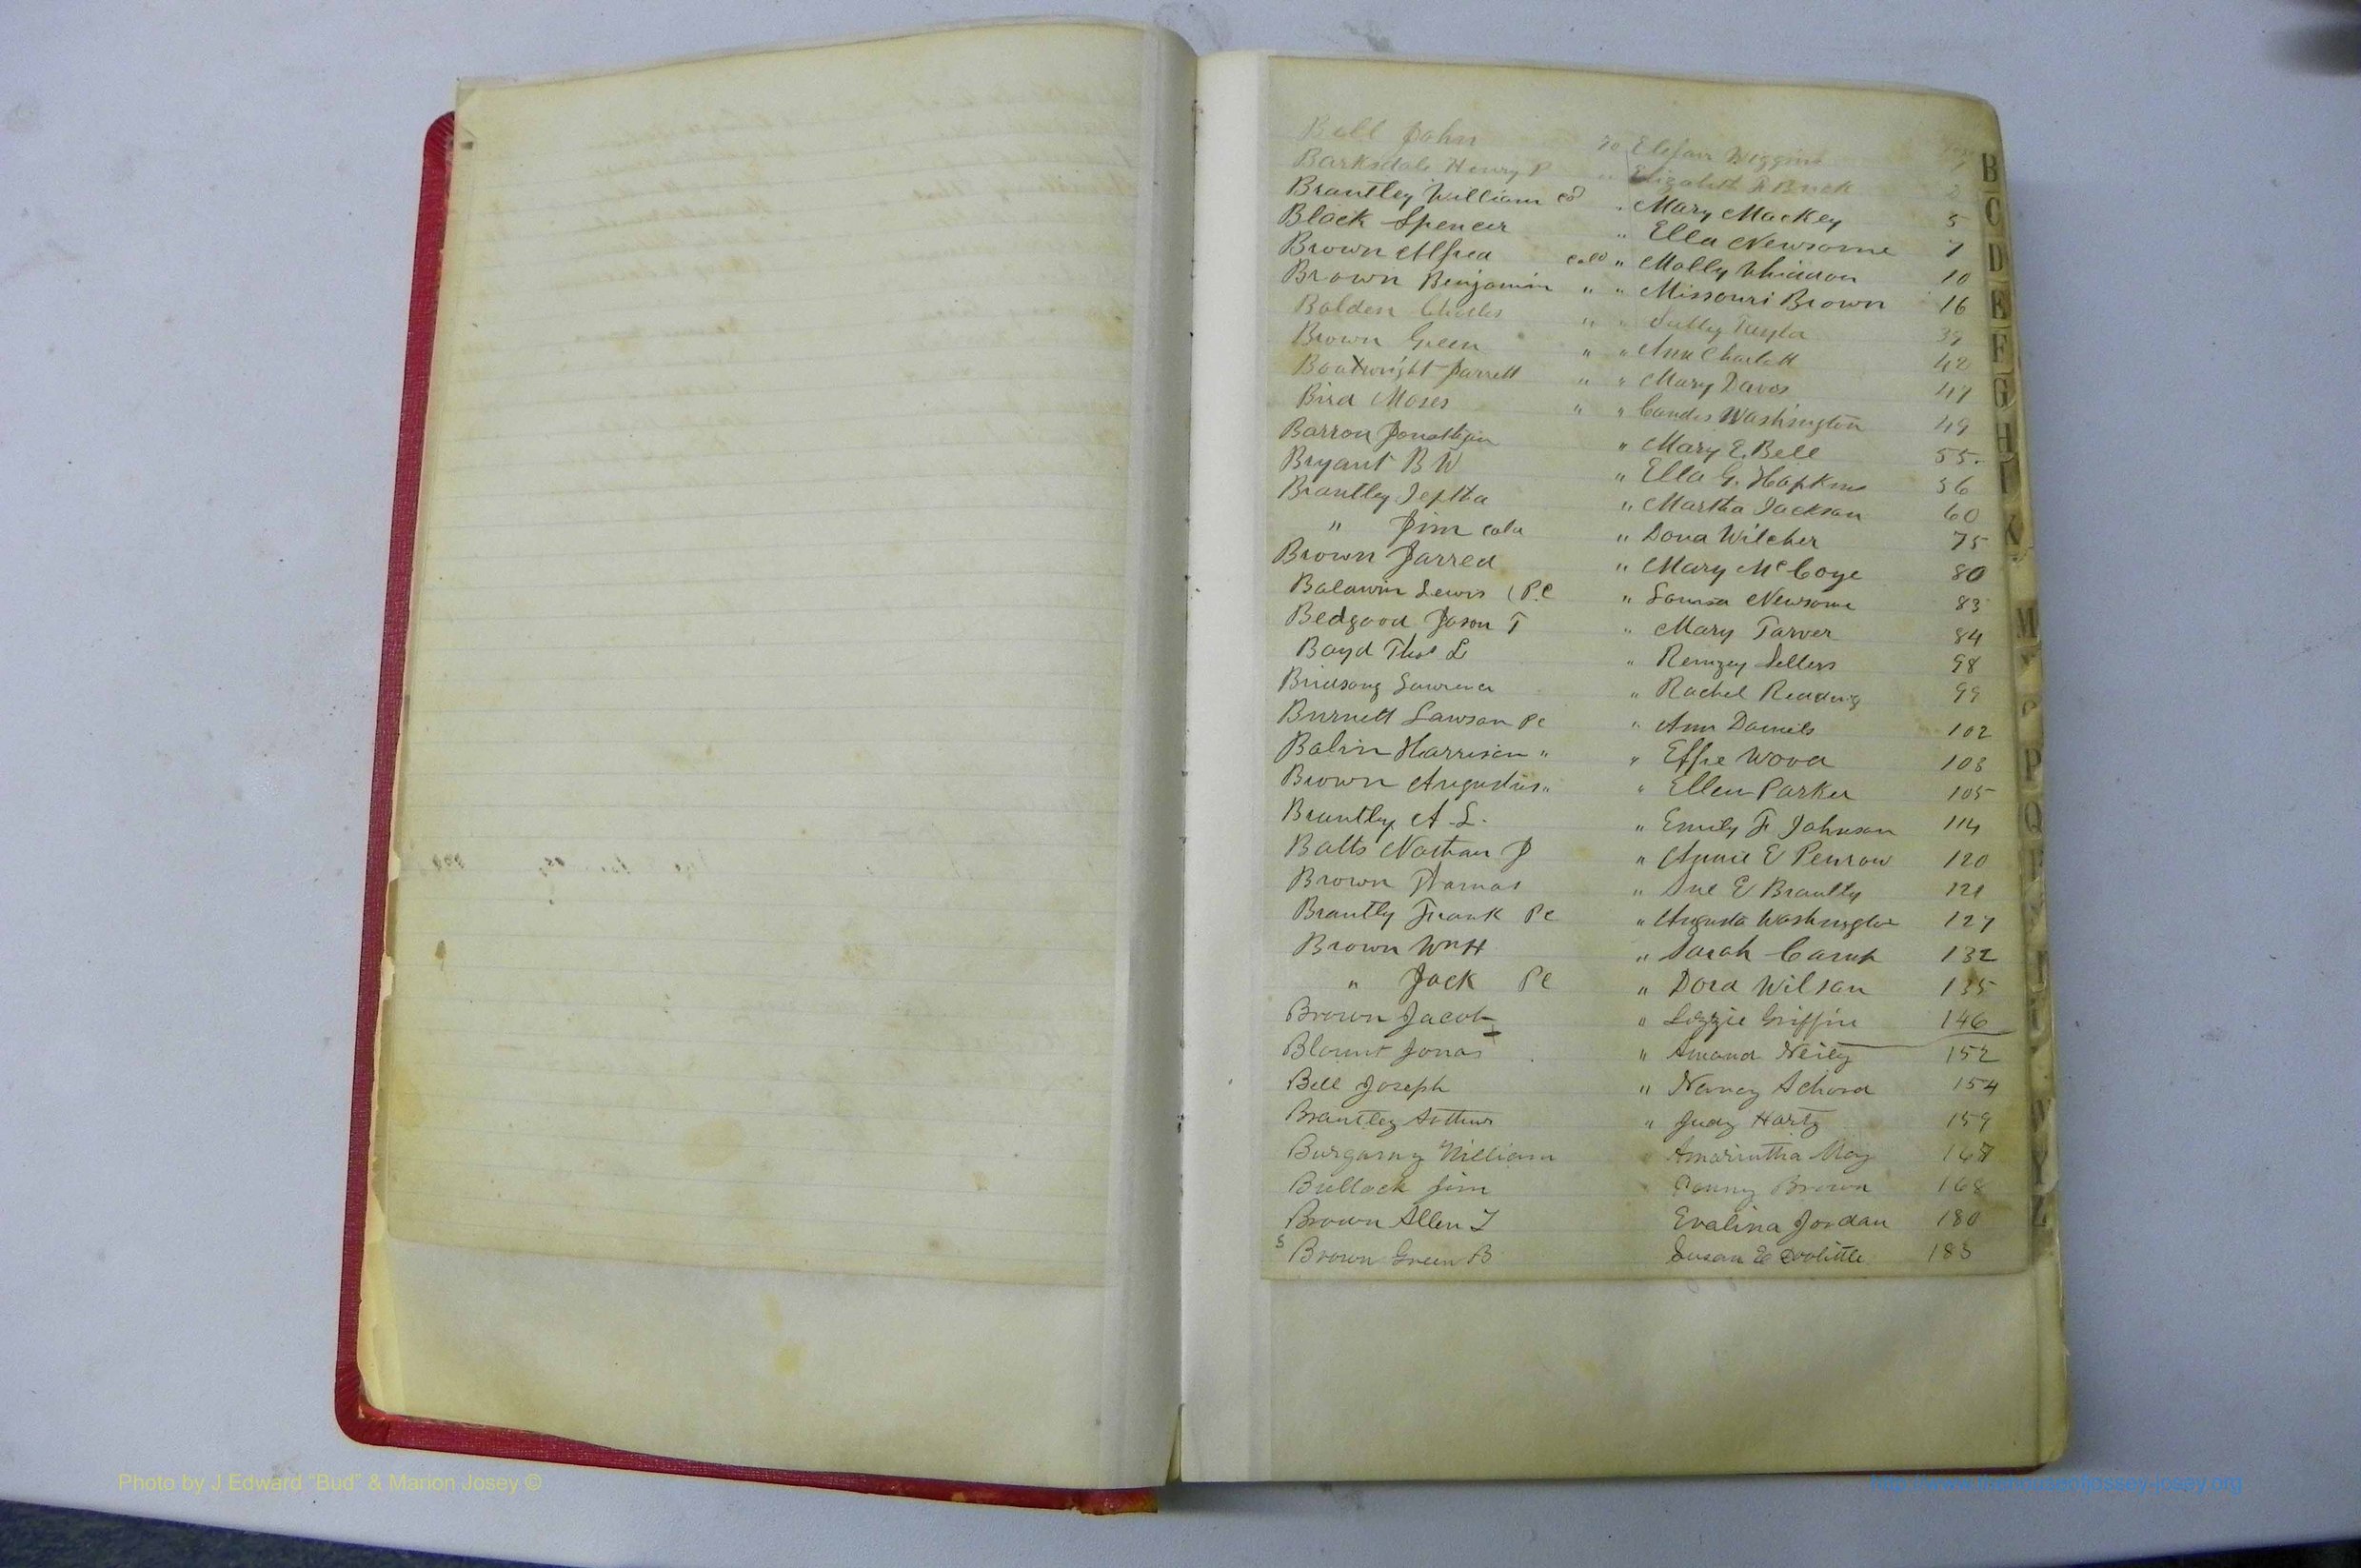 Bell John To Elefair Wiggins
Barksdale Henry P " Elizabeth Buck 2
Brantley William " Mary Mackey 5
Block Spencer " Ella Newsome 7
Brown Alfred cold " Molly Whiddon 10
Brown Benjamin " " Missouri Brown 16
Bolden Charles " " Sally Taylor 39
Brown Green " " Ann Charlott 42
Boatwright Jarrett " " Mary Davis 47
Bird Moses " " Candis Washington 49
Barron Jonathan " Mary E. Bell 55.
Bryant B W " Ella G. Hopkins 56
Brantley Jeptha " Martha Jackson 60
" Jim cold " Dona Wilcher 75
Brown Jarred " Mary McCoye 80
Baldwin Lewis (P.C " Louisa Newsome 83
Bedgood Jason T " Mary Tarver 84
Boyd Thos L " Remzey Sellers 98
Birdsong Lawrence " Rachel Reading 99
Burnett Lawson PC " Ann Daniels 102
Balvin Harrison " " Effie Wood 103
Brown Augustus " " Ellen Parker 105
Brantley A L. " Emily F Johnson 114
Batts Nathan J " Annie E Penrow 120
Brown Thomas " Sue E Brantly 121
Brantly Frank PC " Augusta Washington 127
Brown Wm H " Sarah 132
" Jack PC " Dora Wilson 135
Brown Jacob " Lizzie Griffin 146
Blount Jonas " Amand Neily 152
Bell Joseph " Nancy Achord 154
Brantley Arthur " Judy Hartz 159
Burgamy William Amarintha May 167
Bullock Jim Penny Brown 168
Brown Allen T Evalina Jordan 180
Brown Green B Susan E Doolittle 183
B
C
D
E
F
G
H
I
K
M
P
Q
Y
Z
Photo by J Edward “Bud” & Marion Josey ©
http://www.thehouseofjossey-josey.org